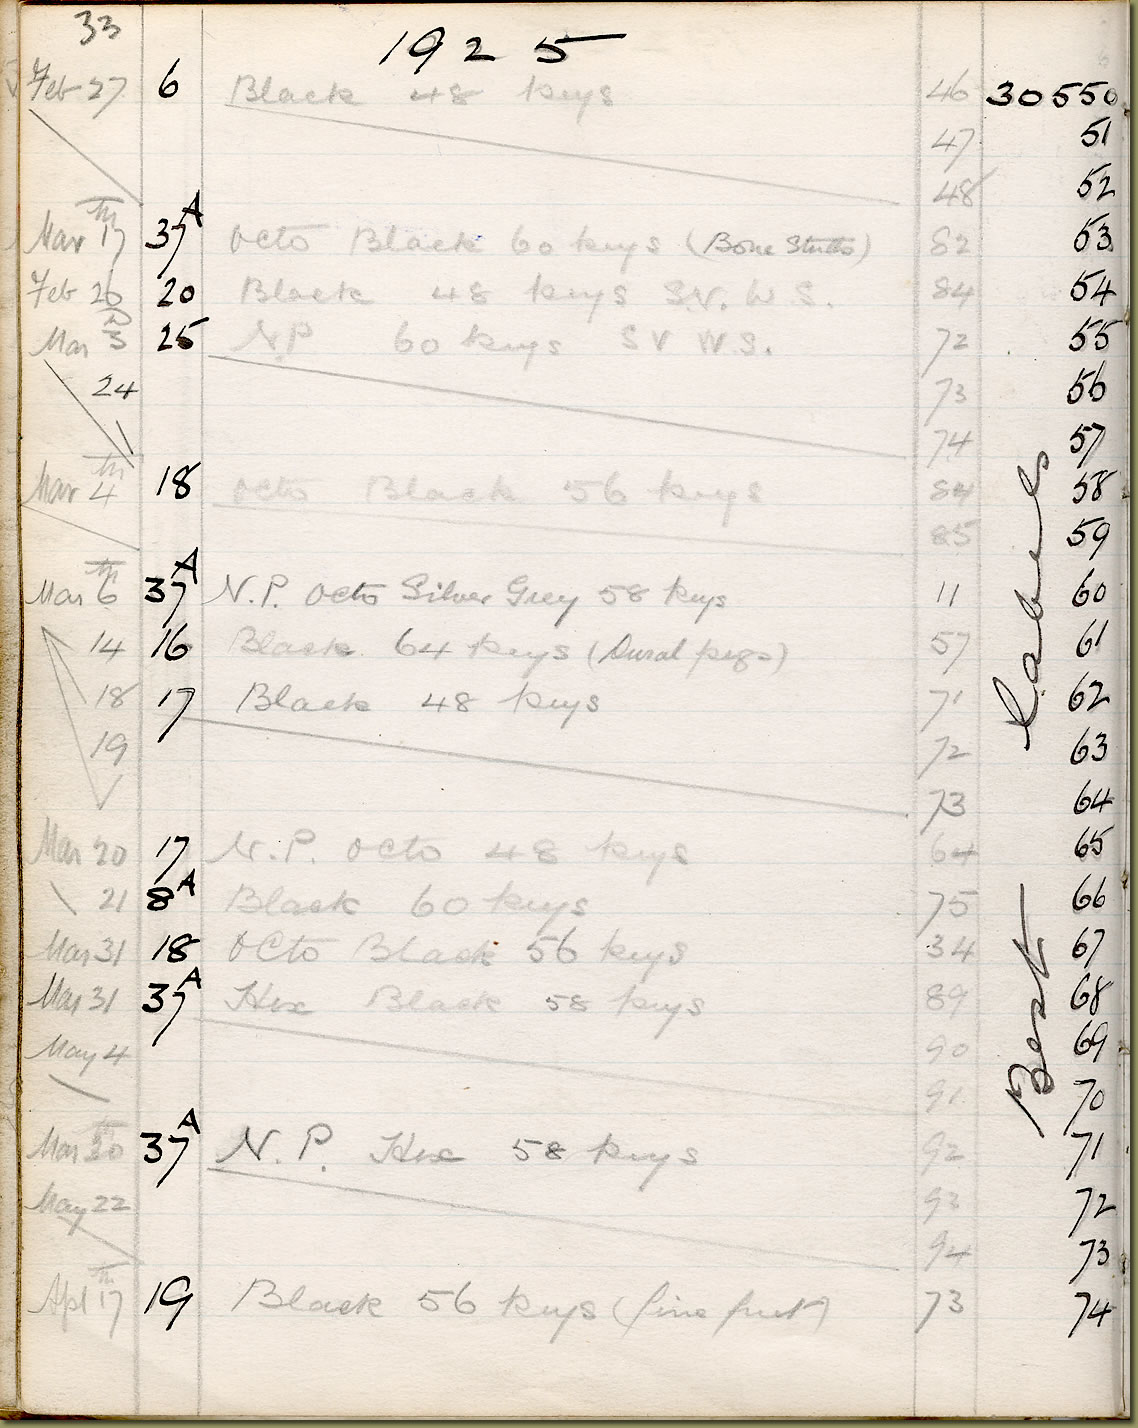 33
1925
Feb 27 6 Black 48 keys 46 30550
47 51
48 52
Mar 17th 37A Octo Black 60 keys (Bone Studs) 82 53
Feb 26 20 Black 48 keys S.V. W S. 84 54
Mar 3 25 N.P 60 keys S V W.S. 72 55
24 73 56
74 57
Mar 4th 18 Octo Black 56 keys 84 58
85 59
Mar 6th 37A N.P. Octo Silver Grey 58 keys 11 60
14 16 Black 64 keys (Dural pegs) 57 61
18 17 Black 48 keys 71 62
19 72 63
73 64
Mar 20 17 N.P. Octo 48 keys 64 65
21 8A Black 60 keys 75 66
Mar 31 18 Octo Black 56 keys 34 67
Mar 31 37A Hex Black 58 keys 89 68
May 4 90 69
91 70
Mar 30th 37A N.P. Hex 58 keys 92 71
May 22 93 72
94 73
Apl 17th 19 Black 56 keys (fine fret) 73 74
Best Labels